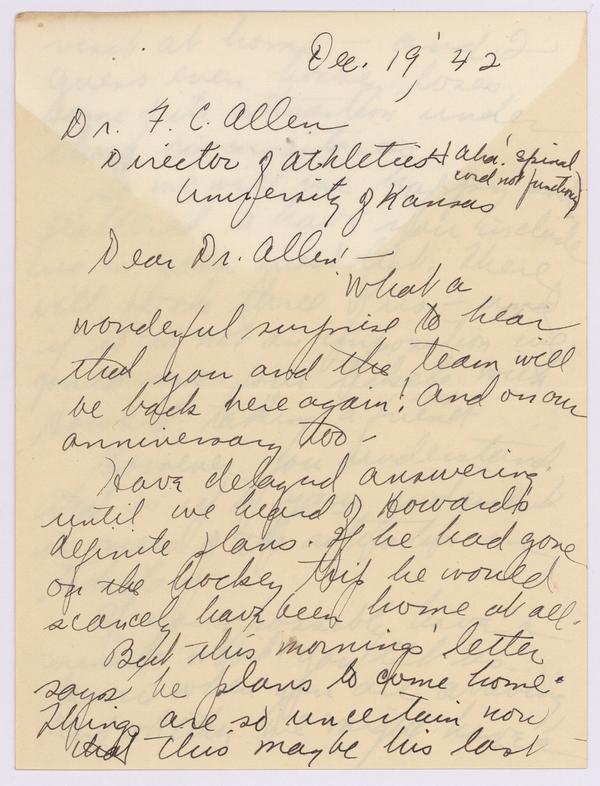 Dec. 19, '42
Dr. F. C. Allen
Director of athletics (Aha! spinal
cord not functiong)
University of Kansas
Dear Dr. Allen! —
What a
wonderful surprise to hear
that you and the team will
be back here again! And on our
anniversary too –
Have delayed answering
until we heard of Howard's
definite plans. If he had gone
on the hockey trip he would
scarcely have been home at all.
But this mornings' letter
says he plans to come home.
Things are so uncertain now
that this maybe his last